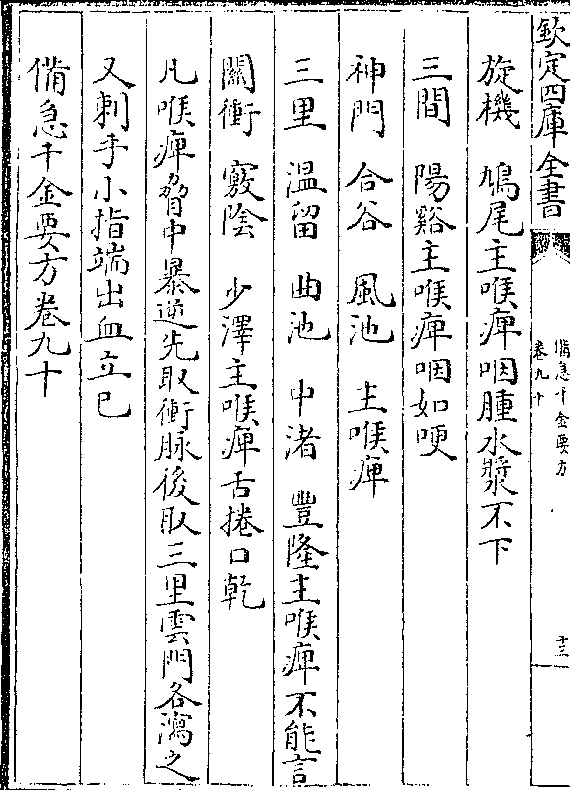 欽定四庫全書
備急千金要方
卷九十
十三
旋機 鳩尾主喉痺咽腫水漿不下
三間 陽谿主喉痺咽如哽
神門 合谷 風池 主喉痺
三里 溫留 曲池 中渚 豐隆主喉痺不能言
關衝 竅陰 少澤主喉痺舌捲口乾
凡喉痺脅中暴逆先取衝脉後取三里雲門各瀉之
又刺手小指端出血立已
備急千金要方卷九十